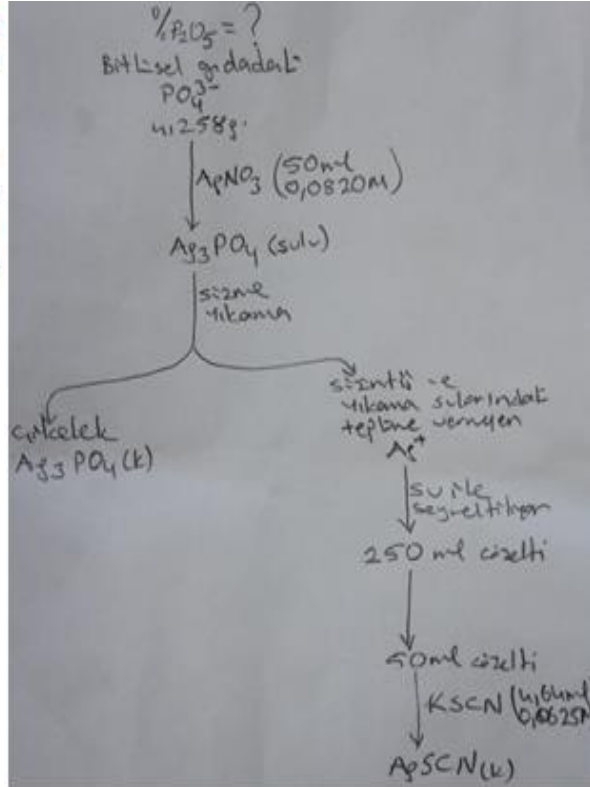 % P2O5 = ?
Bitkisel gıdadaki
PO4^3-
4,258g.
AgNO3 (50ml
0,0820M)
Ag3PO4 (sulu)
süzme
yıkama
çökelek
Ag3PO4(k)
süzüntü ve
yıkama sularındaki
tepkime vermeyen
Ag+
su ile
seyreltiliyor
250 ml çözelti
50ml çözelti
KSCN (4,64ml
0,0625M
AgSCN(k)